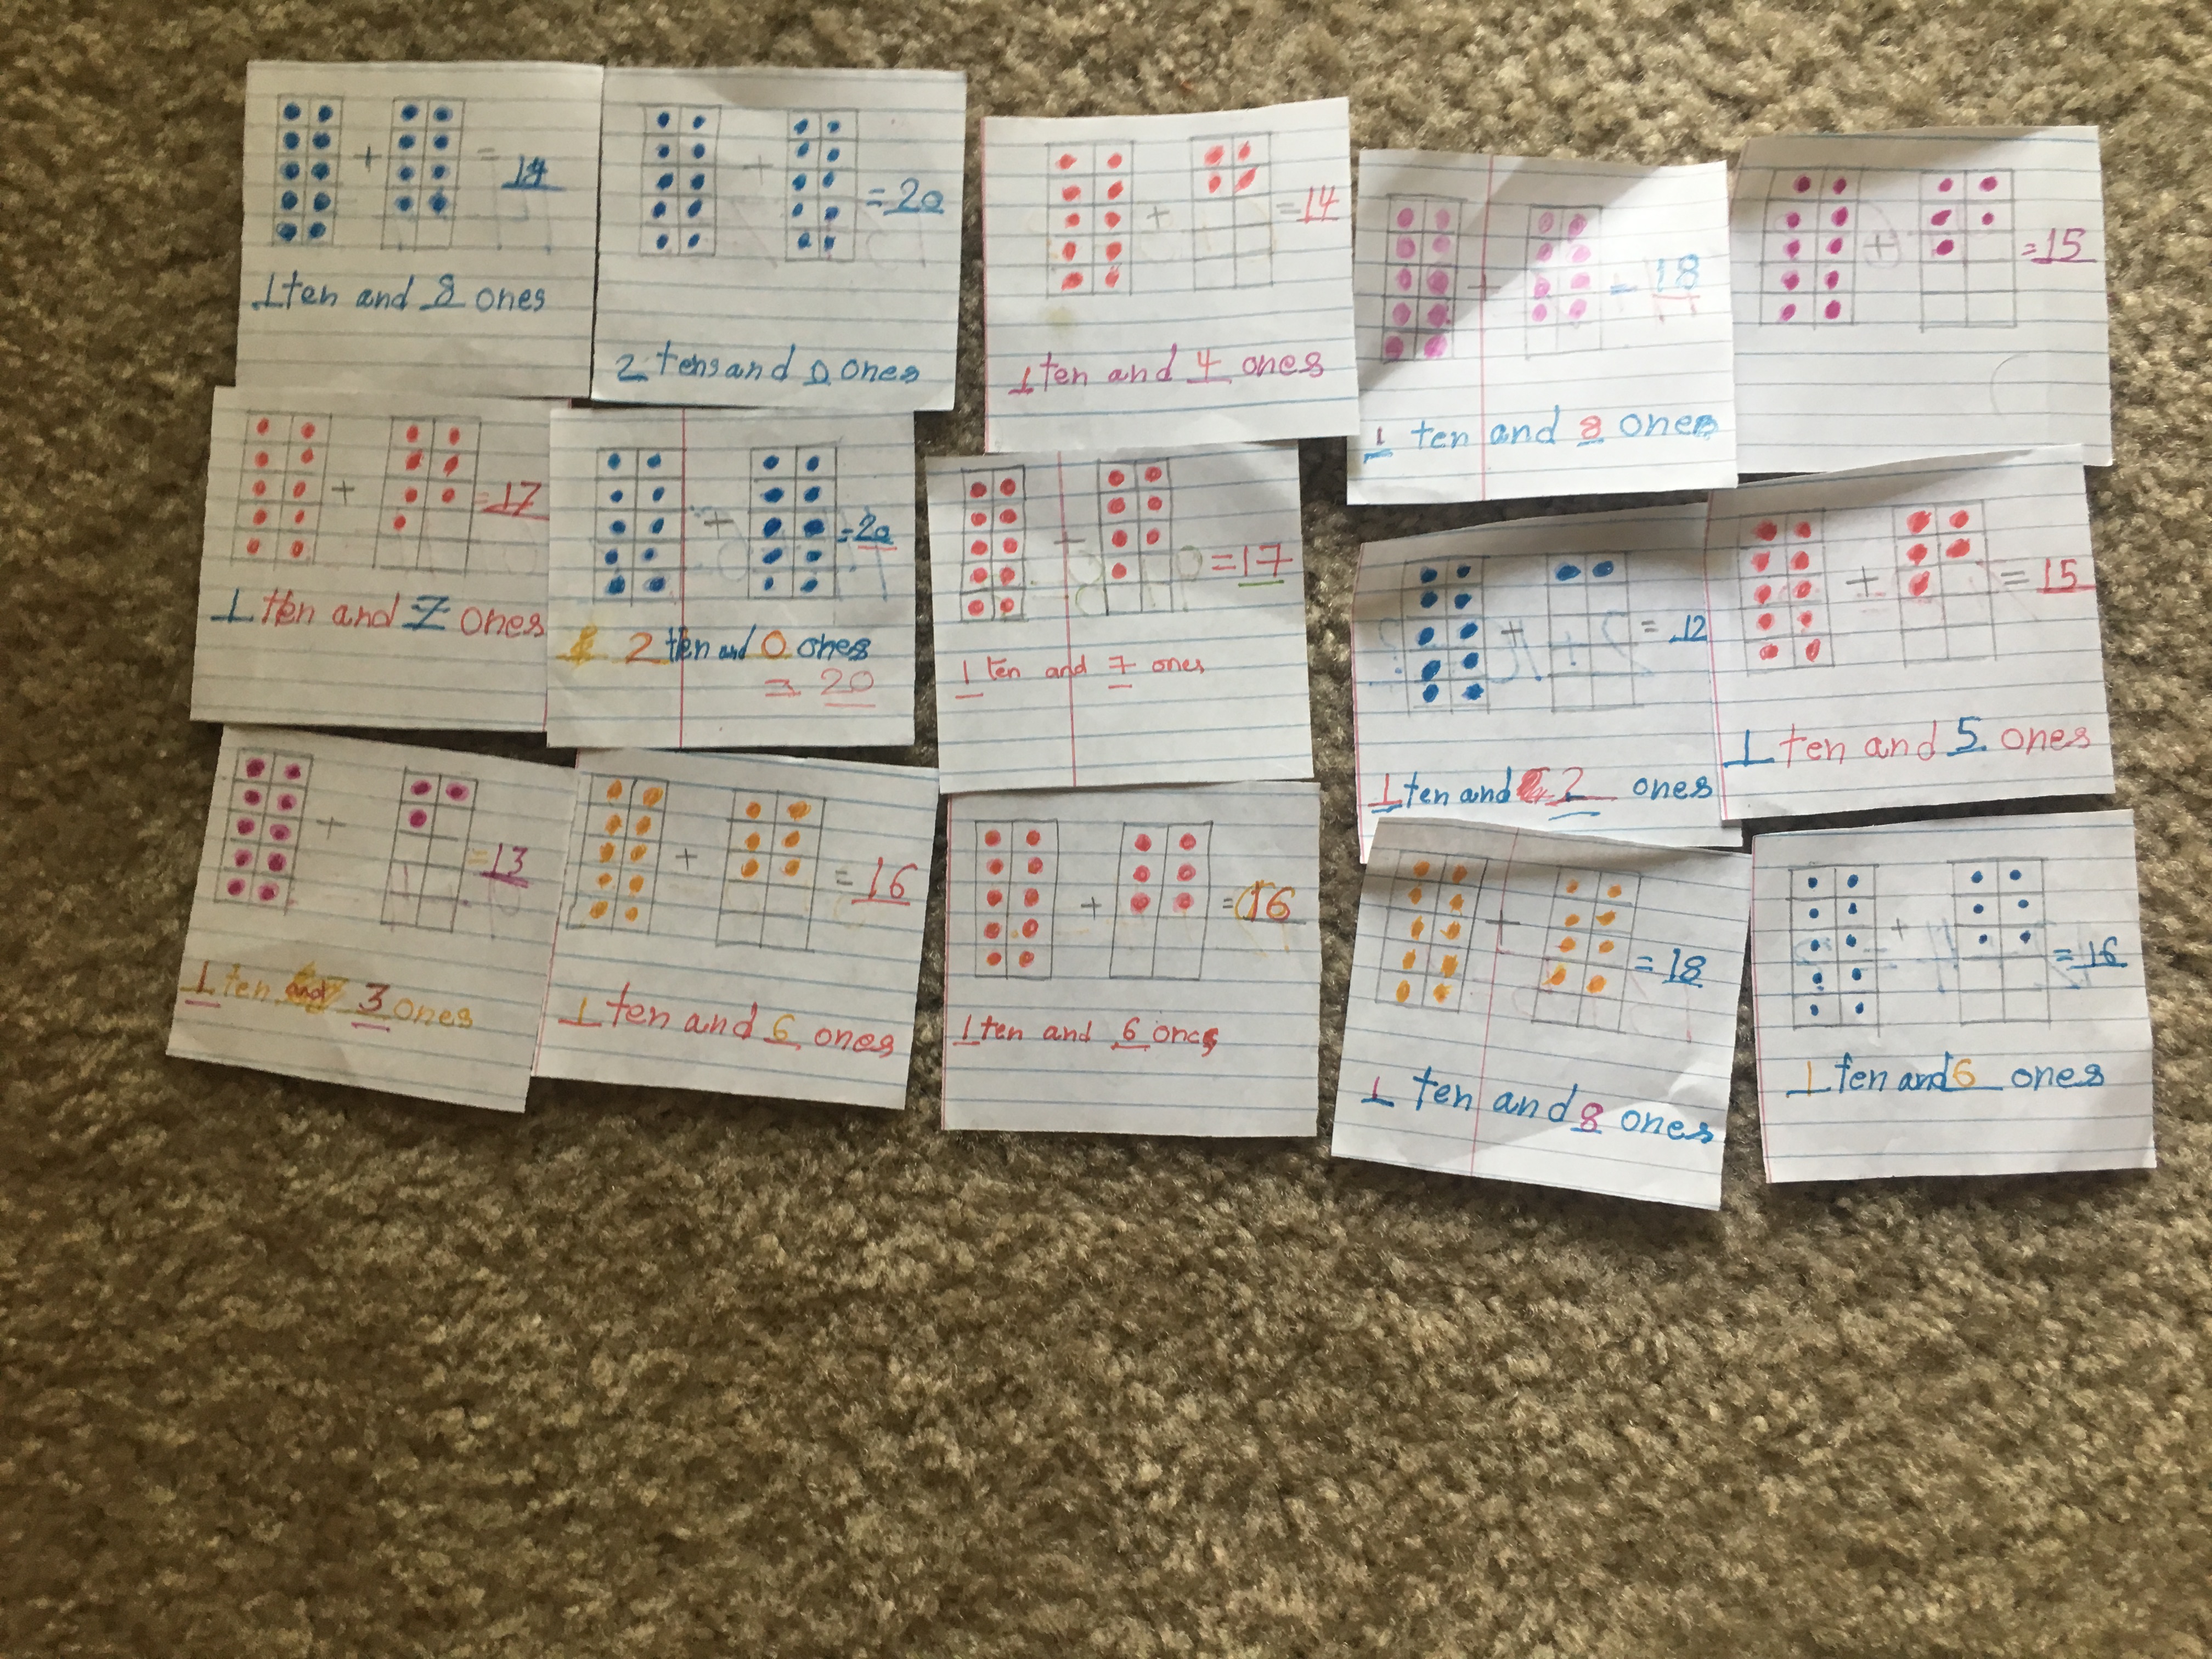 + =
1 ten and 8 ones
+ = 20
2 tens and 0 ones
+ = 14
1 ten and 4 ones
+ = 18
1 ten and 8 ones
+ = 15
+ = 17
1 ten and 7 ones
+ = 20
2 ten and 0 ones
= 20
+ = 17
1 ten and 7 ones
+ = 12
1 ten and 2 ones
+ = 15
1 ten and 5 ones
+ = 13
1 ten and 3 ones
+ = 16
1 ten and 6 ones
+ = 16
1 ten and 6 ones
+ = 18
1 ten and 8 ones
+ = 16
1 ten and 6 ones